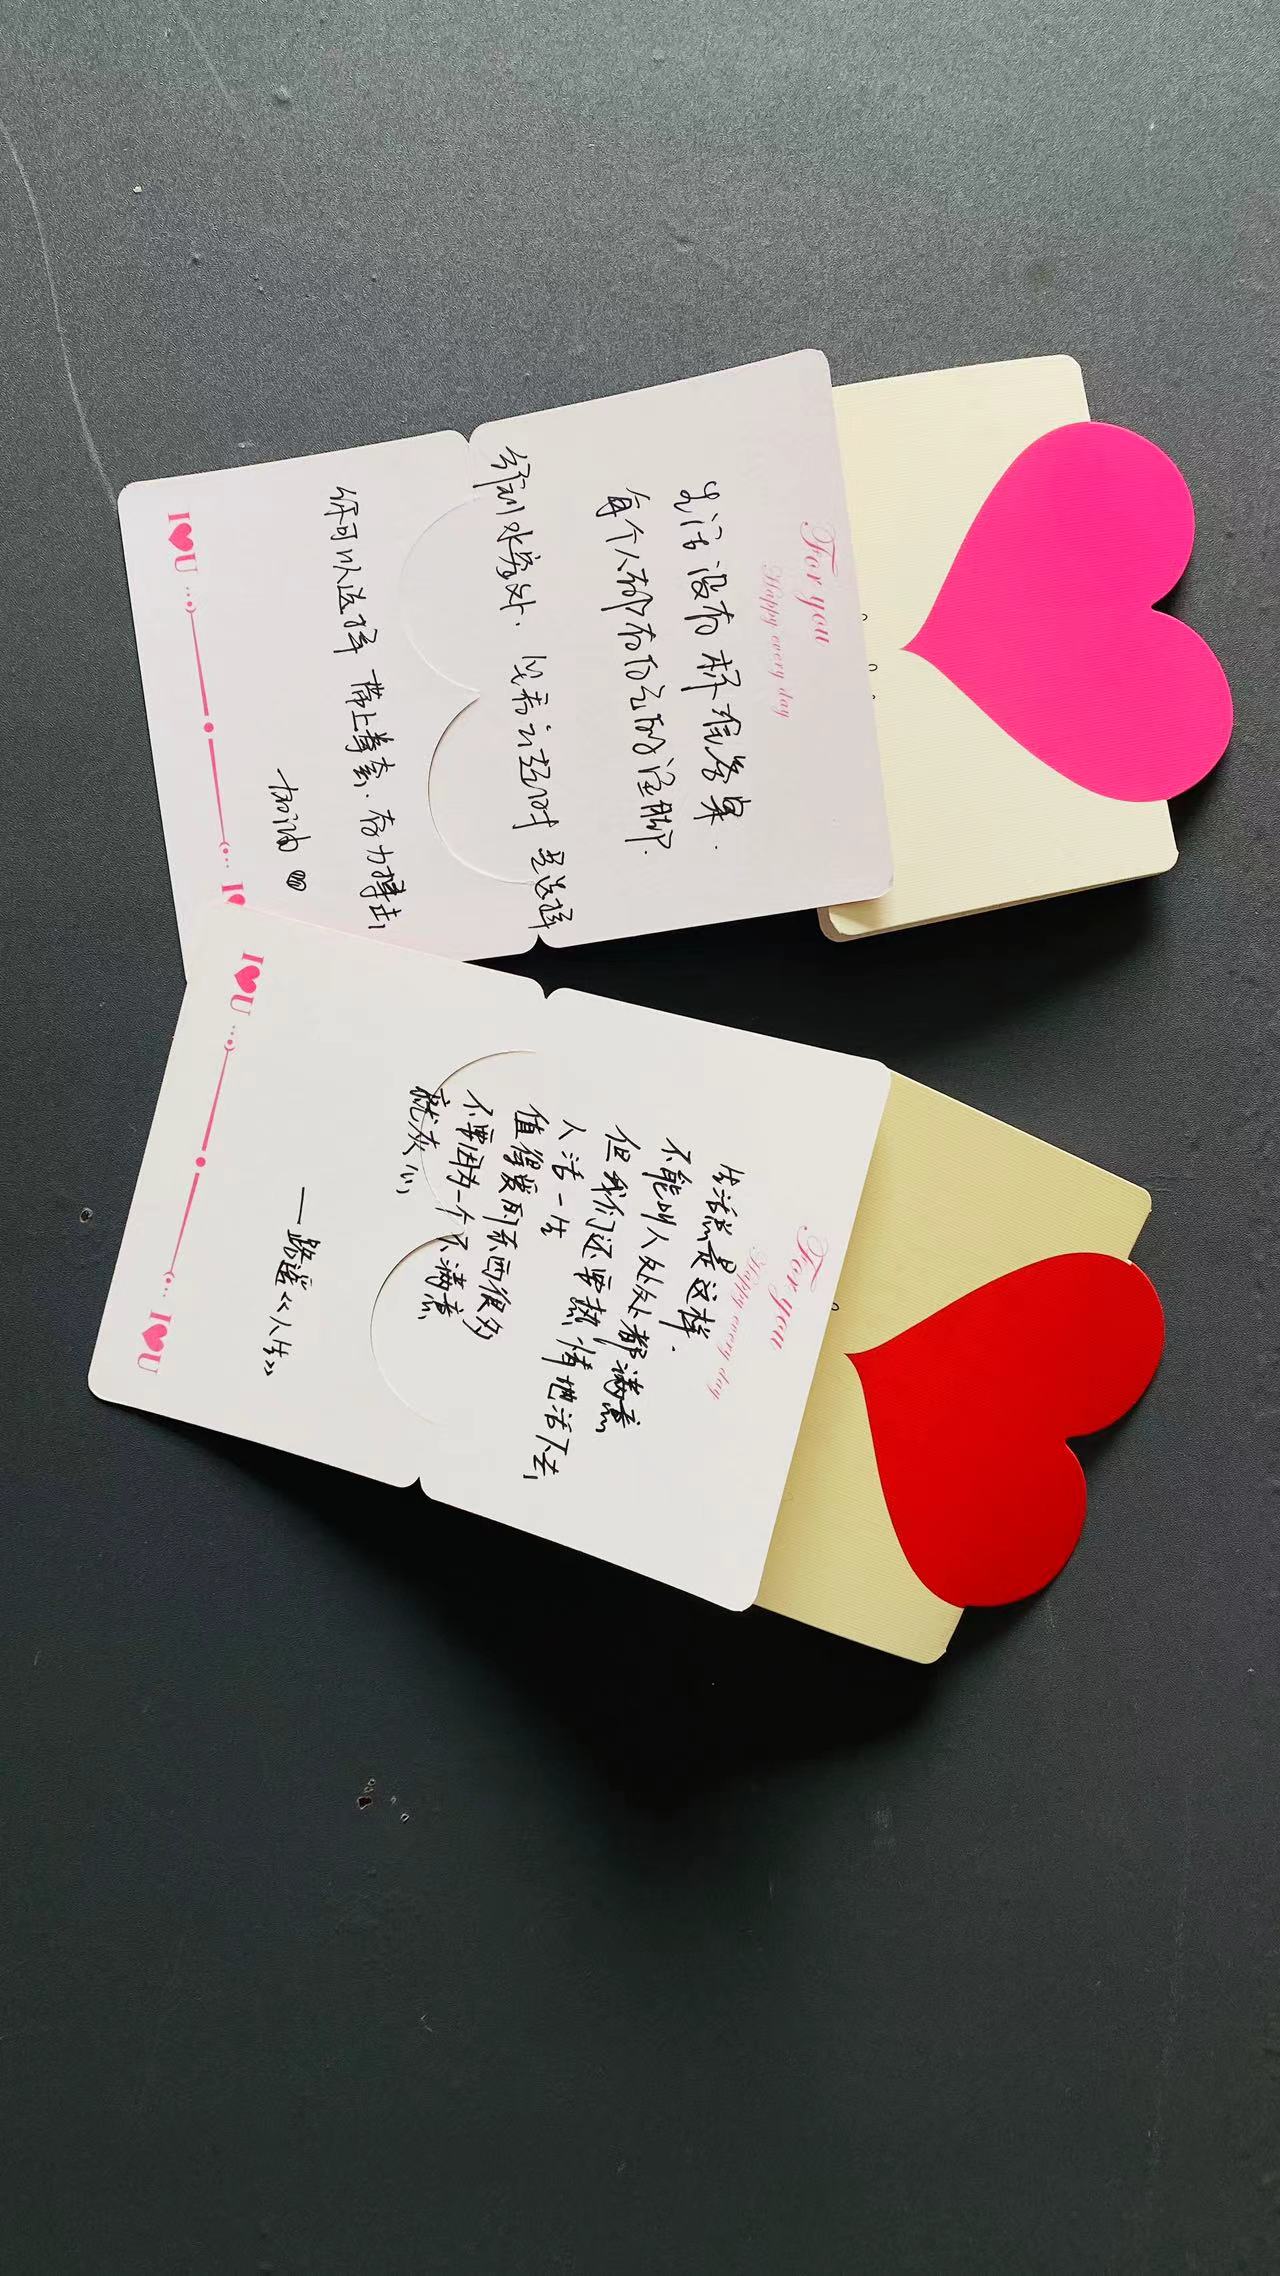 For you
Happy every day
生活没有标准答案.
每个人都有自己的注脚.
行到水穷处. 坐看云起时 是选择
你可以选择 带上拳套. 奋力搏击
加油
I❤U
I
For you
Happy every day
生活总是这样.
不能叫人处处都满意
但我们还要热情地活下去
人活一生
值得爱的东西很多
不要因为一个不满意
就灰心
—路遥《人生》
I❤U
I❤U